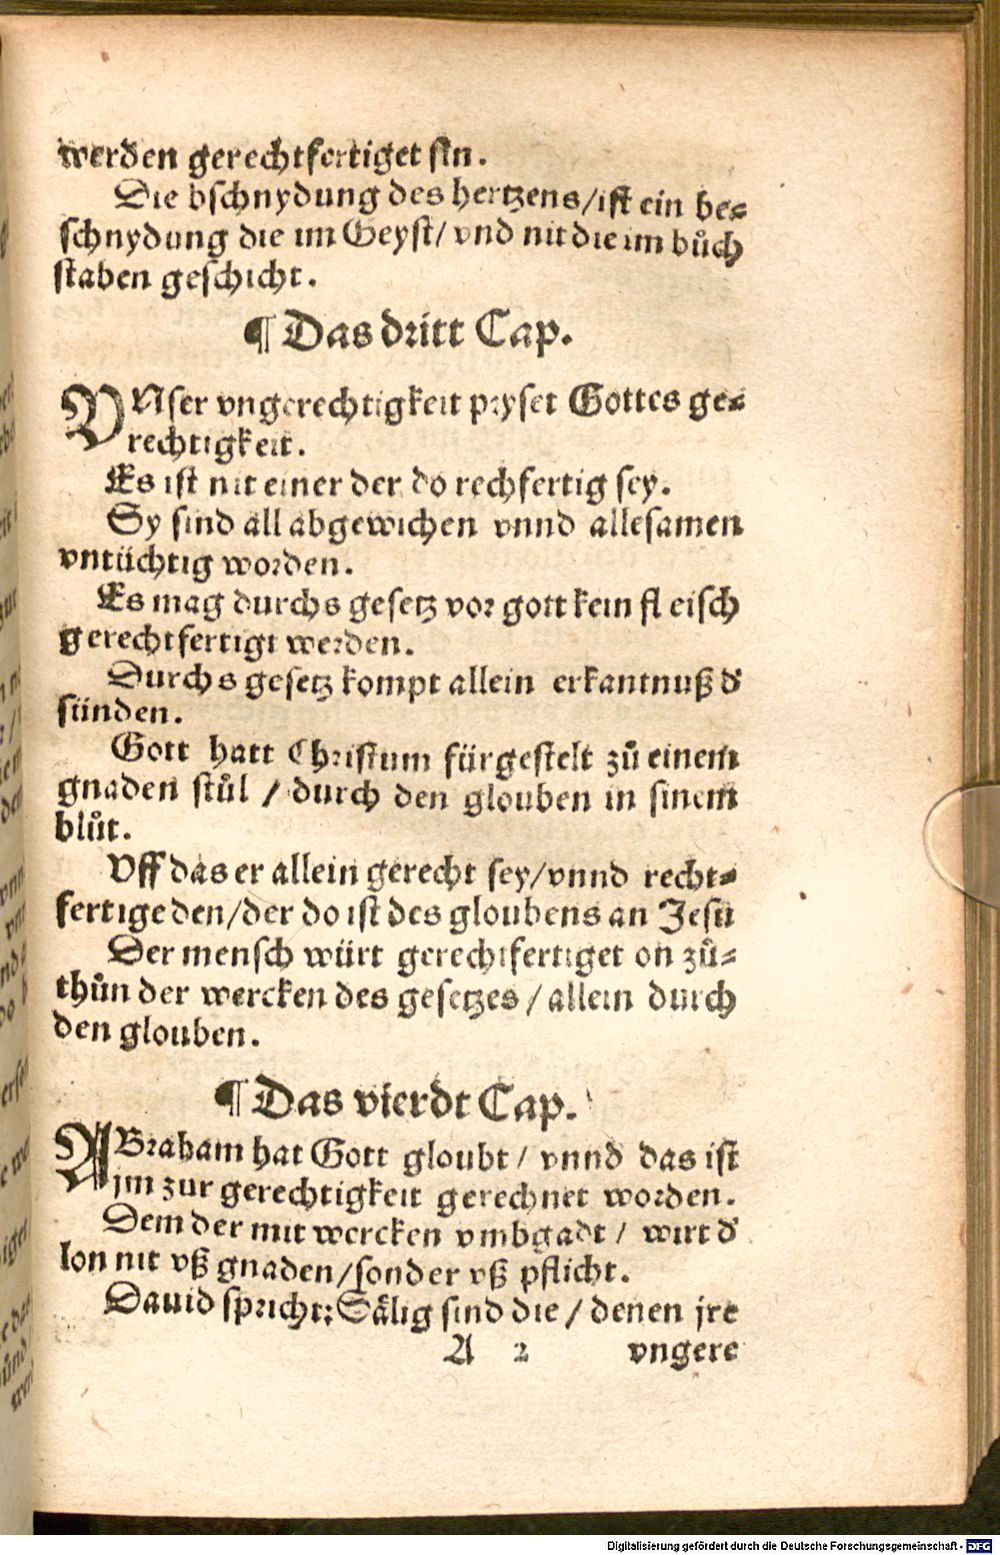 werden gerechtfertiget sin.
Die bschnydung des hertzens/ist ein be⸗
schnydung die im Geyst/ vnd nit die im bůch
staben geschicht.
¶ Das dritt Cap.
VNser vngerechtigkeit pryset Gottes ge⸗
rechtigkeit.
Es ist nit einer der do rechfertig sey.
Sy sind all abgewichen vnnd allesamen
vntüchtig worden.
Es mag durchs gesetz vor gott kein fleisch
gerechtfertigt werden.
Durchs gesetz kompt allein erkantnuß d'
sünden.
Gott hatt Christum fürgestelt zů einem
gnaden stůl / durch den glouben in sinem
blůt.
Vff das er allein gerecht sey/vnnd recht⸗
fertige den/der do ist des gloubens an Jesu
Der mensch würt gerechtfertiget on zů⸗
thůn der wercken des gesetzes / allein durch
den glouben.
¶ Das vierdt Cap.
ABraham hat Gott gloubt / vnnd das ist
jm zur gerechtigkeit gerechnet worden.
Dem der mit wercken vmbgadt / wirt d'
lon nit vß gnaden/sonder vß pflicht.
Dauid spricht: Sälig sind die / denen jre
A 2 vngere
Digitalisierung gefördert durch die Deutsche Forschungsgemeinschaft - DFG